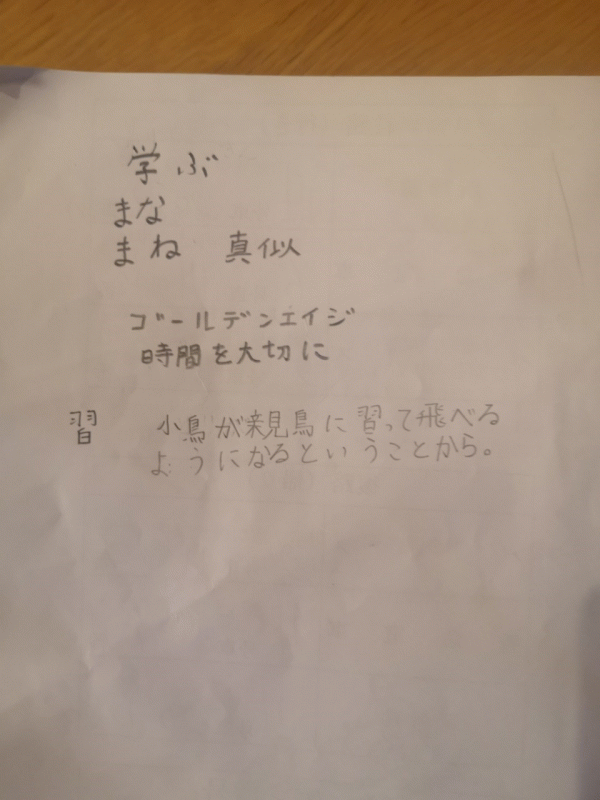 学ぶ
まな
まね 真似
ゴールデンエイジ
時間を大切に
習 小鳥が親鳥に習って飛べる
ようになるということから。